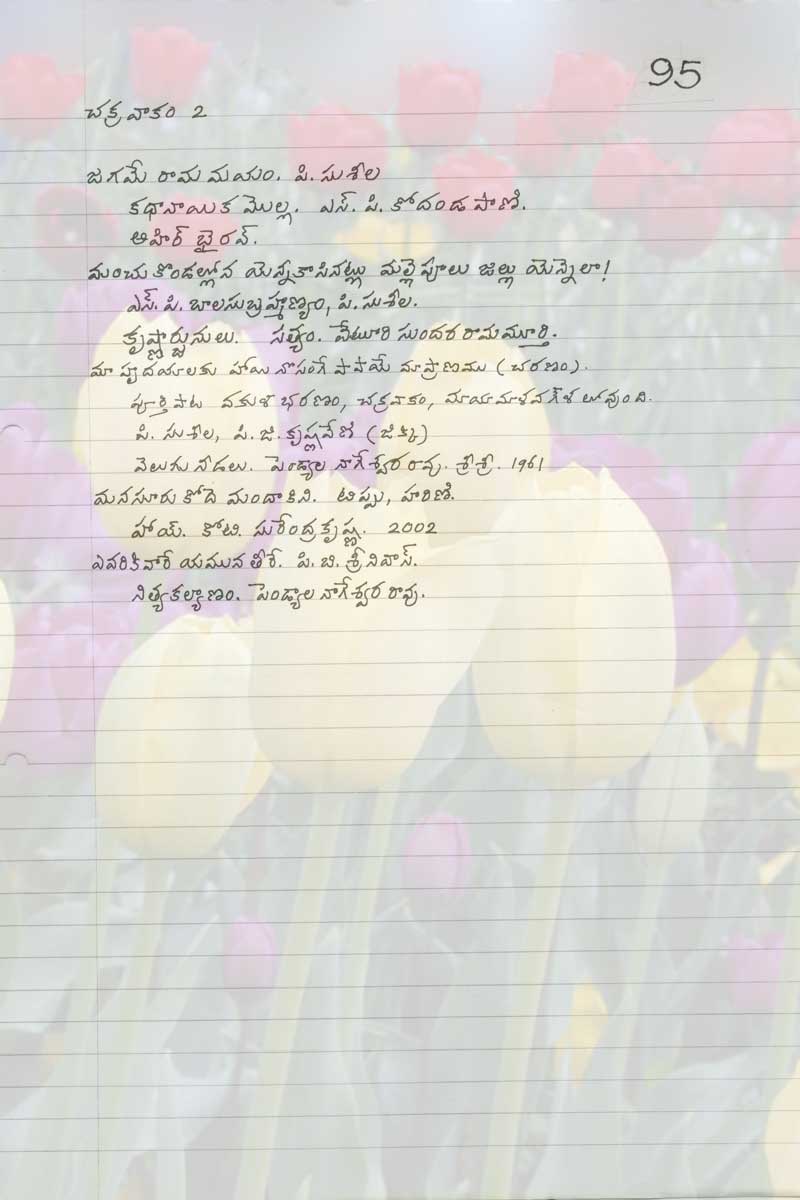 95
చక్రవాకం 2
జగమే రామమయం. పి. సుశీల
కథానాయిక మొల్ల. ఎస్. పి. కోదండపాణి.
ఆహిర్ భైరవ్.
మంచుకొండల్లోన యెన్నకాసినట్లు మల్లెపూలు జల్లు యెన్నెలా!
ఎస్. పి. బాలసుబ్రహ్మణ్యం, పి. సుశీల.
కృష్ణార్జునులు. సత్యం. వేటూరి సుందరరామమూర్తి.
మా హృదయాలకు హాయి నొసంగే పాపాయే మా ప్రాణము (చరణం).
పూర్తి పాట వకుళభరణం, చక్రవాకం, మాయామాళవగౌళ లో వుంది.
పి. సుశీల, పి. జి. కృష్ణవేణి (జిక్కి)
వెలుగునీడలు. పెండ్యాల నాగేశ్వరరావు. శ్రీశ్రీ. 1961
మనసూరుకోదె మందాకిని. టిప్పు, హరిణి.
హాయ్. కోటి. సురేంద్రకృష్ణ. 2002
ఎవరికివారే యమున తీరే. పి. బి. శ్రీనివాస్.
నిత్యకల్యాణం. పెండ్యాల నాగేశ్వరరావు.